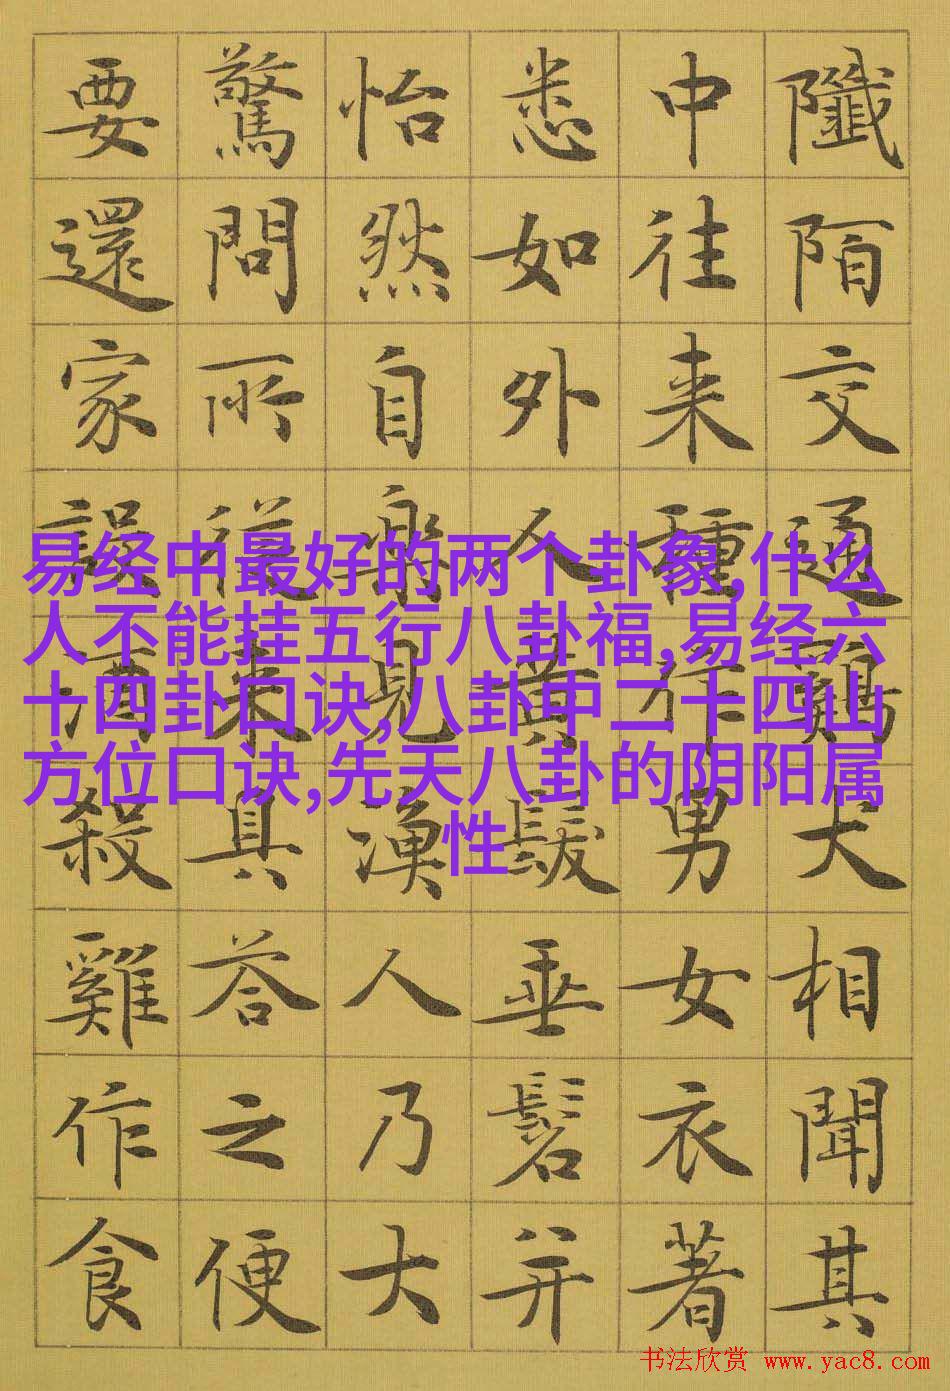 陌交通鷄犬相聞其
中往来種作男女衣著
悉如外人黄髮垂髫并
怡然自樂見漁人乃大
驚問所從来具答之便
要還家設酒殺雞作食
易经中最好的两个卦象,什么
人不能挂五行八卦福,易经六
十四卦口诀,八卦中二十四山
方位口诀,先天八卦的阴阳属
性
书法欣赏 www.yac8.com